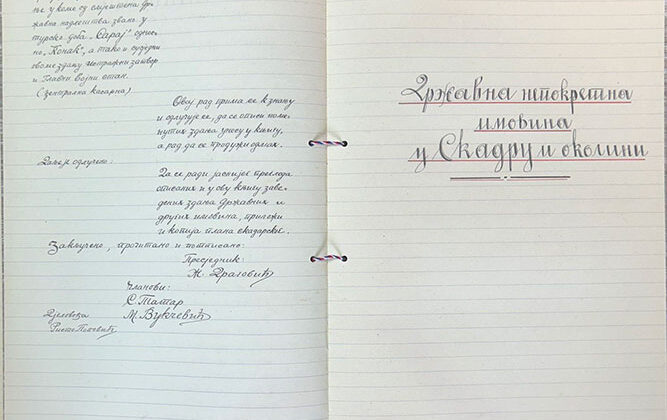 ње у коме су смјештена др-
жавна надлештва звана у
турско доба „Сарај“ односно
но „Конак“, а тако и судејски
овоме здању истражни затвор
и Главни војни стан.
(централна касарна)
Овај рад прима се к знању
и одлучује се, да се описи поме-
нутих здања унесу у књигу,
а рад да се продужи одмах.
Даље је одлучено:
Да се ради јаснијег прегледа
описаних и у ову књигу заве-
дених здања државних и
других имовина, приложи
и копија плана скадарског.
Закључено, прочитано и потписано:
Предсједник:
Ж. Драговић
Чланови:
С. Татар
М. Вукчевић
Дјеловођа
Ристо Поповић
Државна непокретна
имовина
у Скадру и околини